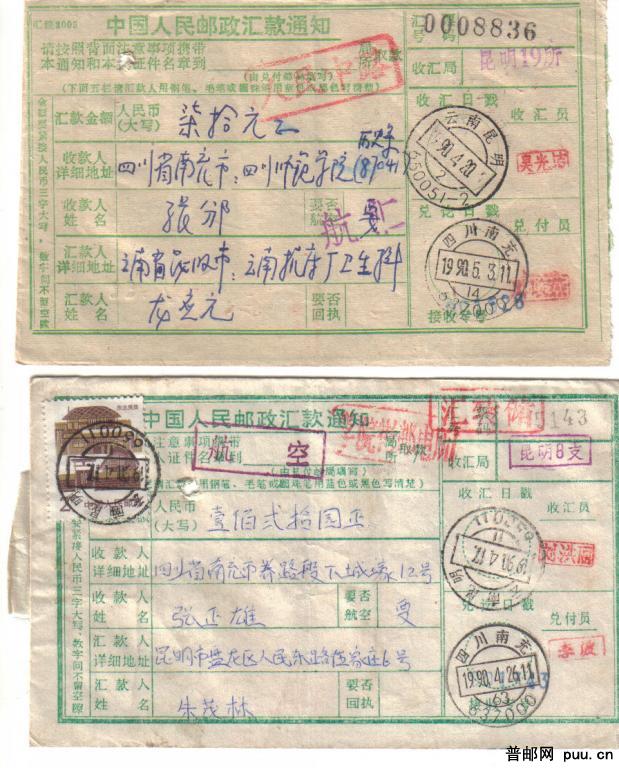 汇按2005
中国人民邮政汇款通知
请按照背面注意事项携带
本通知和本人证件名章到
局所
取款
(由兑付局填写)
(下面五栏请汇款人用钢笔、毛笔或圆珠笔用蓝色或黑色写清楚)
汇票号码
0008836
收汇局
昆明19所
收汇日戳
收汇员
云南昆明
1990.4.20
650051-2
兑讫日戳
兑付员
四川南充
1990.5.3.11
14
接收专号
汇款金额
人民币
(大写)
柒拾元正
收款人
详细地址
四川省南充市:四川师范学院
收款人
姓名
要否
航空
要
汇款人
详细地址
云南省昆明市:云南机床厂卫生科
汇款人
姓名
要否
回执
中国人民邮政汇款通知
注意事项携带
人证件名章到
航空
(由兑付局填写)
局所
取款
143
收汇局
昆明8支
收汇日戳
收汇员
人民币
(大写)
壹佰贰拾圆正
收款人
详细地址
四川省南充市养路段下城壕12号
收款人
姓名
张正雄
要否
航空
要
汇款人
详细地址
昆明市盘龙区人民东路伍家庄6号
汇款人
姓名
朱茂林
要否
回执
650011
1990.4.17
兑讫日戳
兑付员
四川南充
1990.4.26.11
63
637000
李波
普邮网 puu.cn